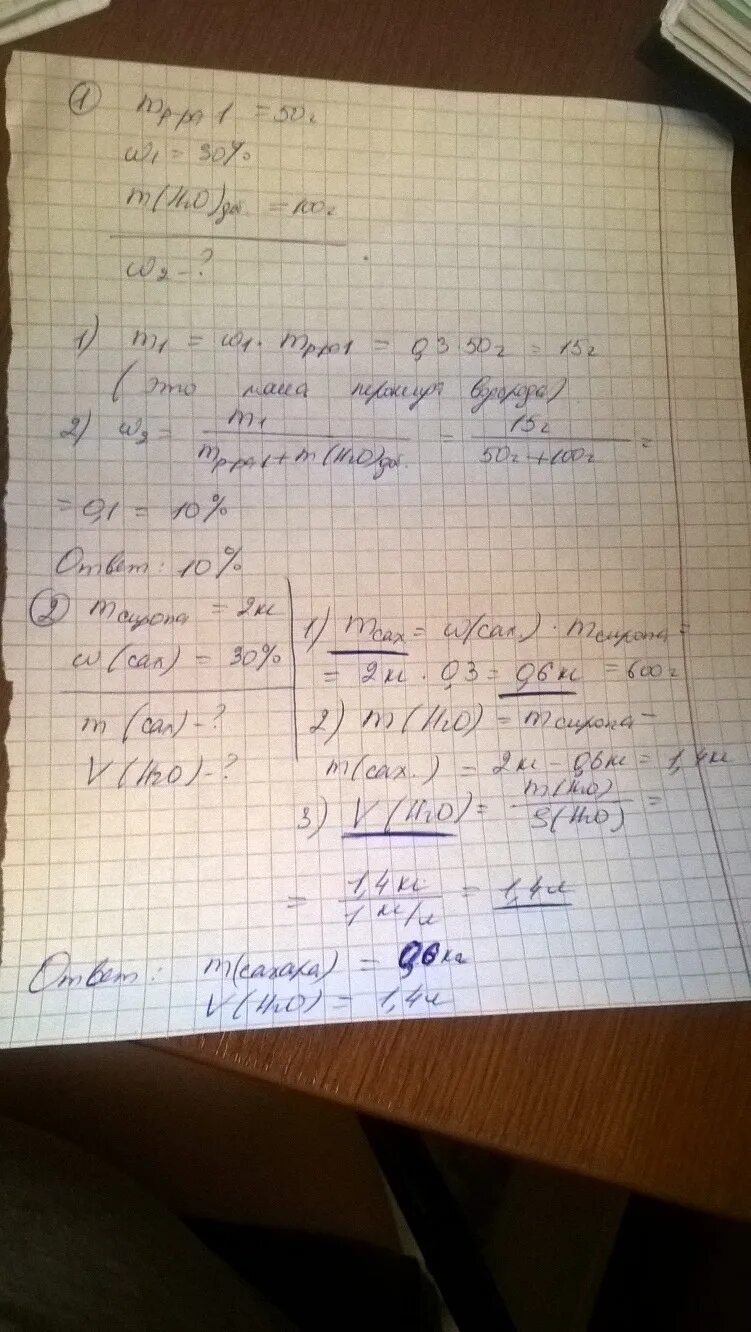 1 m р-ра 1 = 50г
ω1 = 30%
m(H2O)доб. = 100г
ω2 - ?
1) m1 = ω1 · m р-ра 1 = 0,3 · 50г = 15г
(это масса пероксида водорода)
2) ω2 = m1 / m р-ра 1 + m(H2O)доб. = 15г / 50г + 100г =
= 0,1 = 10%
Ответ: 10%
2 m сиропа = 2кг
ω(сах) = 30%
m(сах) - ?
V(H2O) - ?
1) m сах = ω(сах) · m сиропа =
= 2кг · 0,3 = 0,6кг = 600г
2) m(H2O) = m сиропа -
m(сах.) = 2кг - 0,6кг = 1,4кг
3) V(H2O) = m(H2O) / ρ(H2O) =
= 1,4кг / 1 кг/л = 1,4л
Ответ: m(сахара) = 0,6кг
V(H2O) = 1,4л